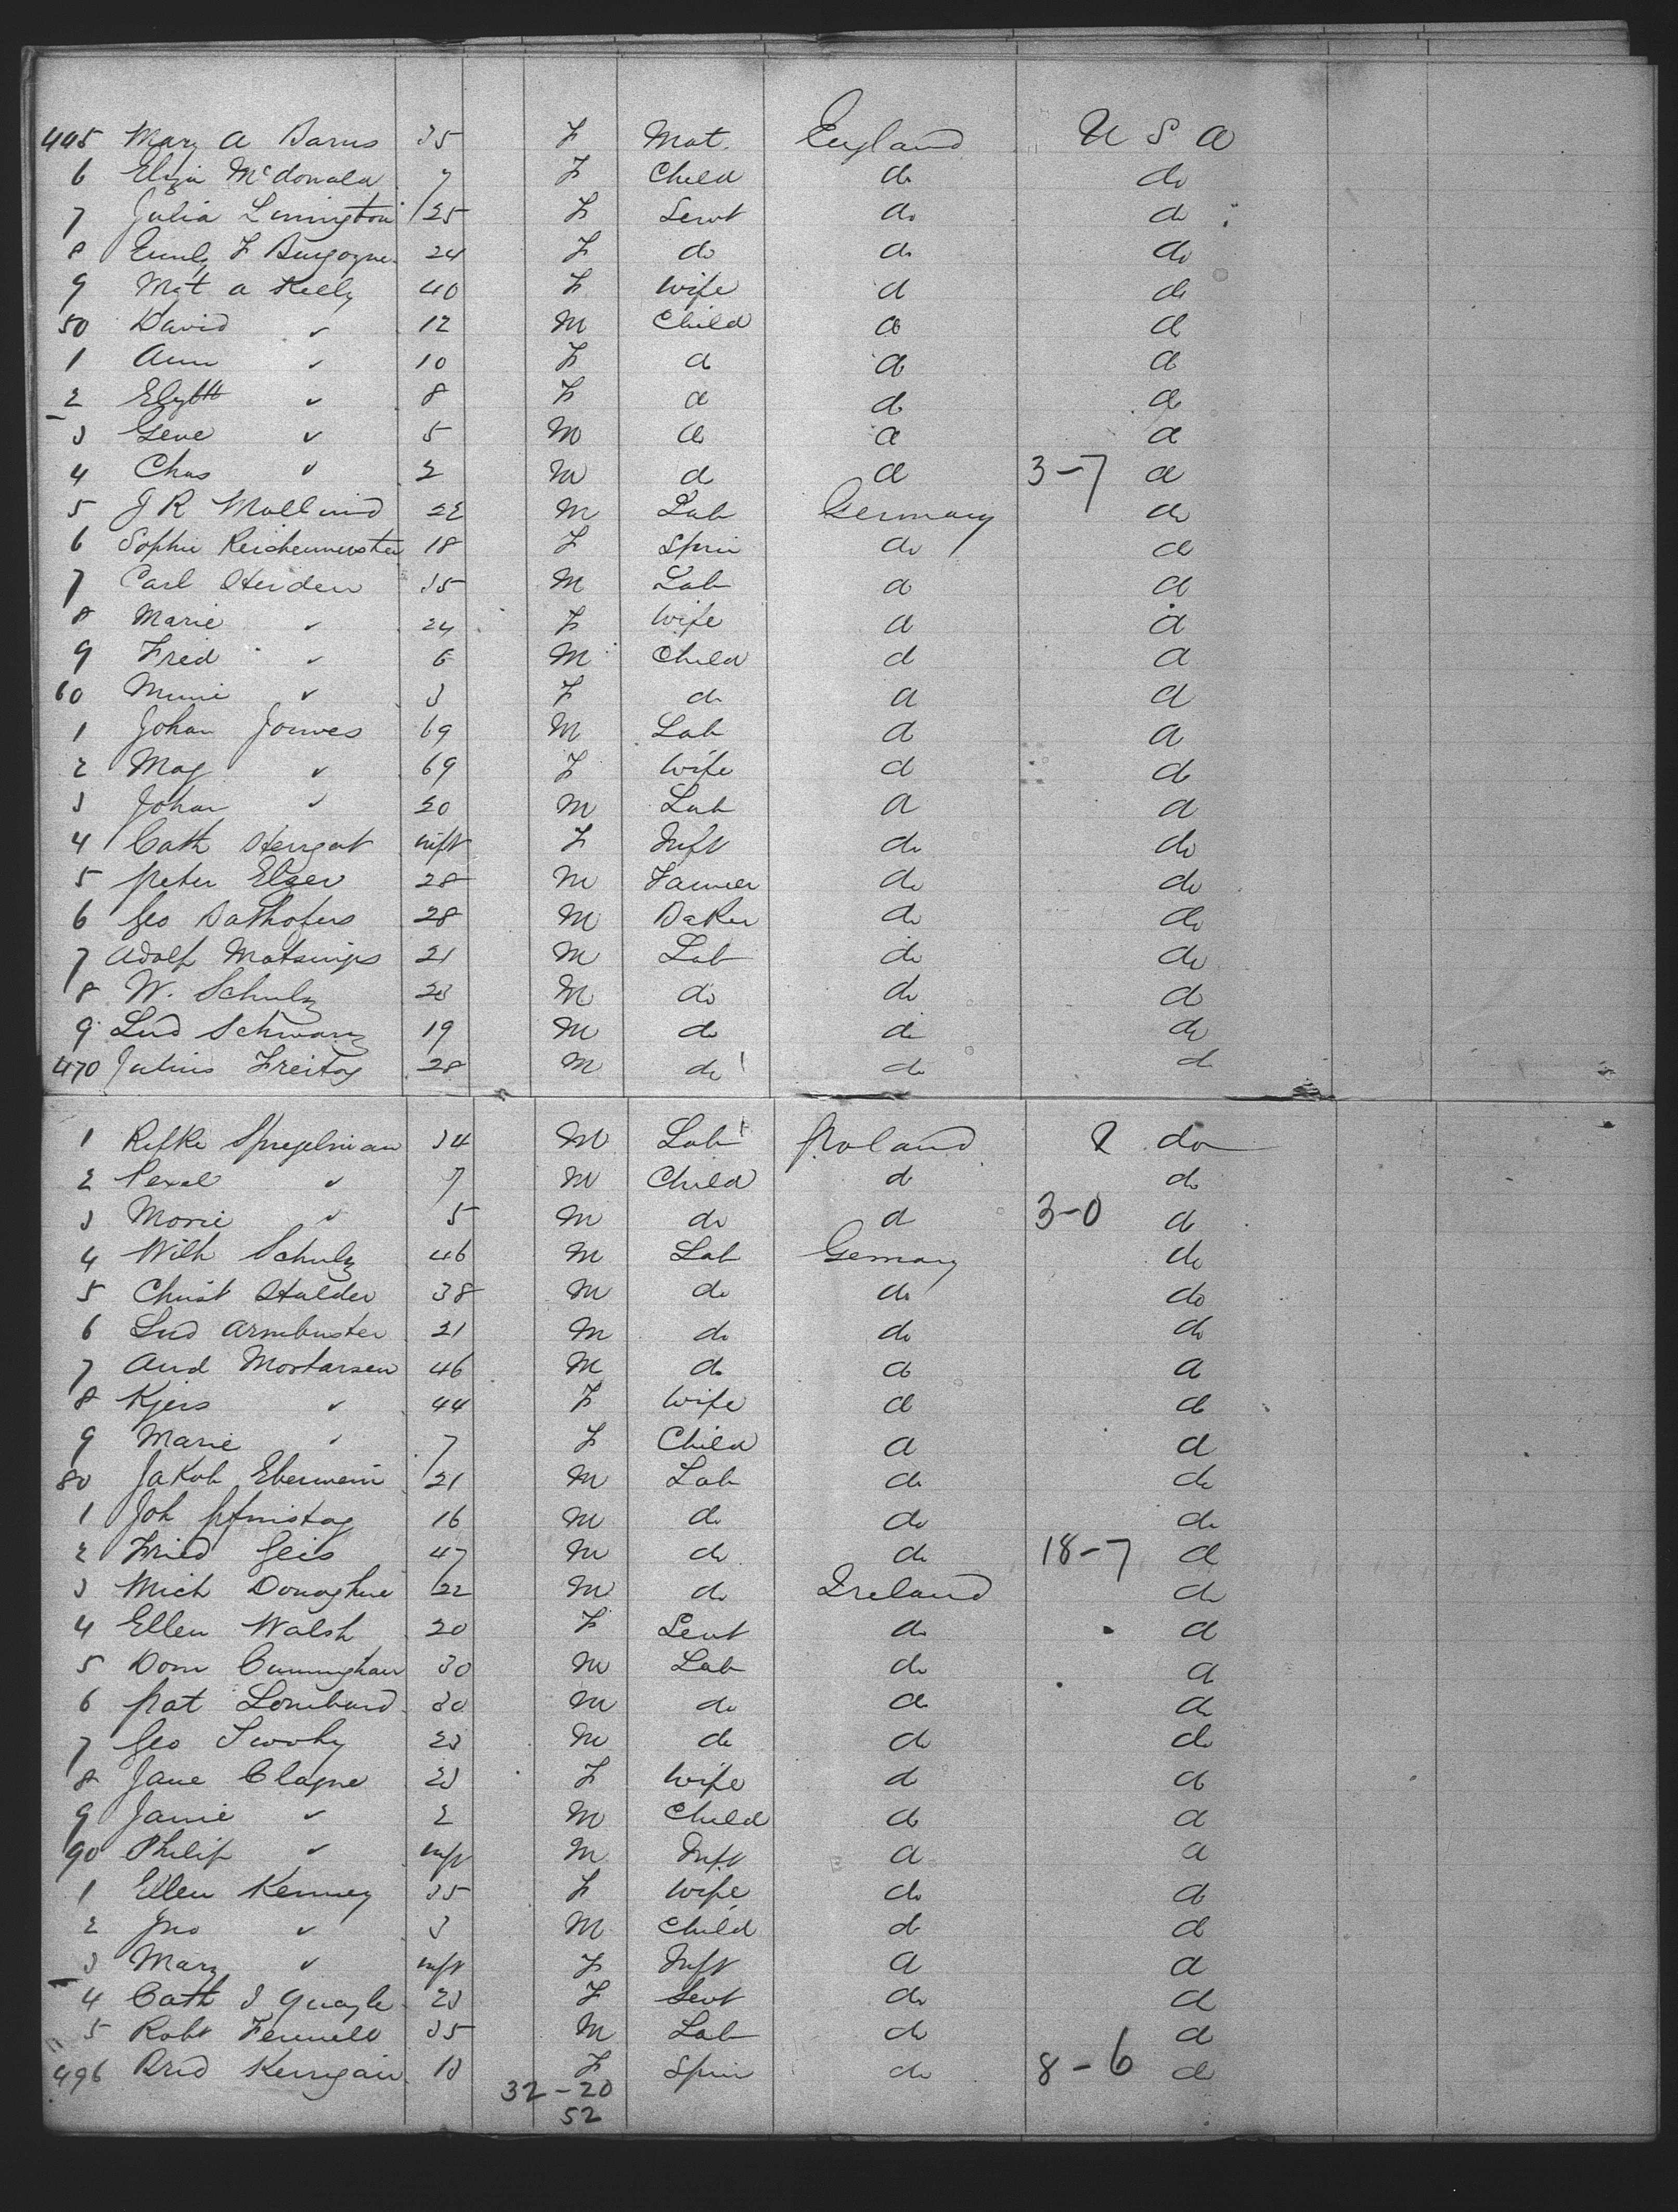 445 Mary A Barns 35 F Mat. England U S A
6 Eliza McDonald 7 F Child do do
7 Julia Linnington 25 F Servt do do
8 Emily F Burgoyne 24 F do do do
9 Mgt A Kelly 40 F Wife do do
50 David " 12 M Child do do
1 Ann " 10 F do do do
2 Elizbth " 8 F do do do
3 Geve " 5 M do do do
4 Chas " 2 M do do 3-7 do
5 J R Mollind 22 M Lab Germany do
6 Sophie Reichenmester 18 F Spin do do
7 Carl Heiden 35 M Lab do do
8 Marie " 24 F Wife do do
9 Fred " 6 M Child do do
60 Minie " 3 F do do do
1 Johan Jonves 69 M Lab do do
2 Mag " 69 F Wife do do
3 Johan " 20 M Lab do do
4 Cath Hergat inft F Inft do do
5 Peter Elzer 28 M Farmer do do
6 Geo Bathofers 28 M Baker do do
7 Adolf 21 M Lab do do
8 W. Schulz 23 M do do do
9 Lud Schwarz 19 M do do do
470 Julius Freitag 28 M do do do
1 Rifke Spiegelman 34 M Lab Poland do
2 Pexel " 7 M Child do do
3 Morie " 5 M do do 3-0 do
4 Wilh Schulz 46 M Lab Germany do
5 Christ Halder 38 M do do do
6 Lud Armbuster 21 M do do do
7 And Mortarsen 46 M do do do
8 Kjers " 44 F Wife do do
9 Marie " 7 F Child do do
80 Jakob Eberwein 21 M Lab do do
1 Joh Pfinstag 16 M do do do
2 Fried Geis 47 M do do 18-7 do
3 Mich Donaghue 22 M do Ireland do
4 Ellen Walsh 20 F Sevt do do
5 Dom Cunningham 30 M Lab do do
6 Pat Lombard 30 M do do do
7 Geo 23 M do do do
8 Jane Clague 23 F Wife do do
9 Jamie " 2 M Child do do
90 Philip " inft M Inft do do
1 Ellen Kenney 35 F Wife do do
2 Jno " 3 M Child do do
3 Mary " inft F Inft do do
4 Cath J Quayle 23 F Sevt do do
5 Robt Fennell 35 M Lab do do
496 Brid Kerrigan 18 F Spin do 8-6 do
32-20
52